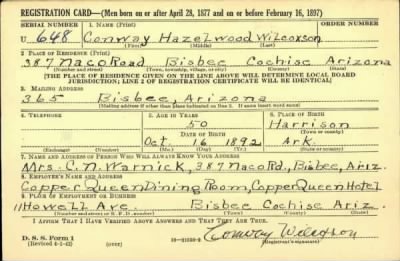 REGISTRATION CARD—(Men born on or after April 28, 1877 and on or before February 16, 1897)
SERIAL NUMBER 1. NAME (Print) ORDER NUMBER
U 648 Conway Hazelwood Wilcoxson
(First) (Middle) (Last)
2. PLACE OF RESIDENCE (Print)
387 Naco Road, Bisbee Cochise Arizona
(Number and street) (Town, township, village, or city) (County) (State)
[THE PLACE OF RESIDENCE GIVEN ON THE LINE ABOVE WILL DETERMINE LOCAL BOARD
JURISDICTION; LINE 2 OF REGISTRATION CERTIFICATE WILL BE IDENTICAL]
3. MAILING ADDRESS
365 Bisbee, Arizona
(Mailing address if other than place indicated on line 2. If same insert word same)
4. TELEPHONE 5. AGE IN YEARS 6. PLACE OF BIRTH
50 Harrison
DATE OF BIRTH (Town or county)
Oct 16 1892 Ark.
(Exchange) (Number) (Mo.) (Day) (Yr.) (State or country)
7. NAME AND ADDRESS OF PERSON WHO WILL ALWAYS KNOW YOUR ADDRESS
Mrs. C. N. Warnick, 387 Naco Rd., Bisbee, Ariz.
8. EMPLOYER'S NAME AND ADDRESS
Copper Queen Dining Room, Copper Queen Hotel
9. PLACE OF EMPLOYMENT OR BUSINESS
11 Howell Ave. Bisbee Cochise Ariz.
(Number and street or R. F. D. number) (Town) (County) (State)
I AFFIRM THAT I HAVE VERIFIED ABOVE ANSWERS AND THAT THEY ARE TRUE.
D. S. S. Form 1
(Revised 4-1-42) (over) Conway Wilcoxson
(Registrant's signature)